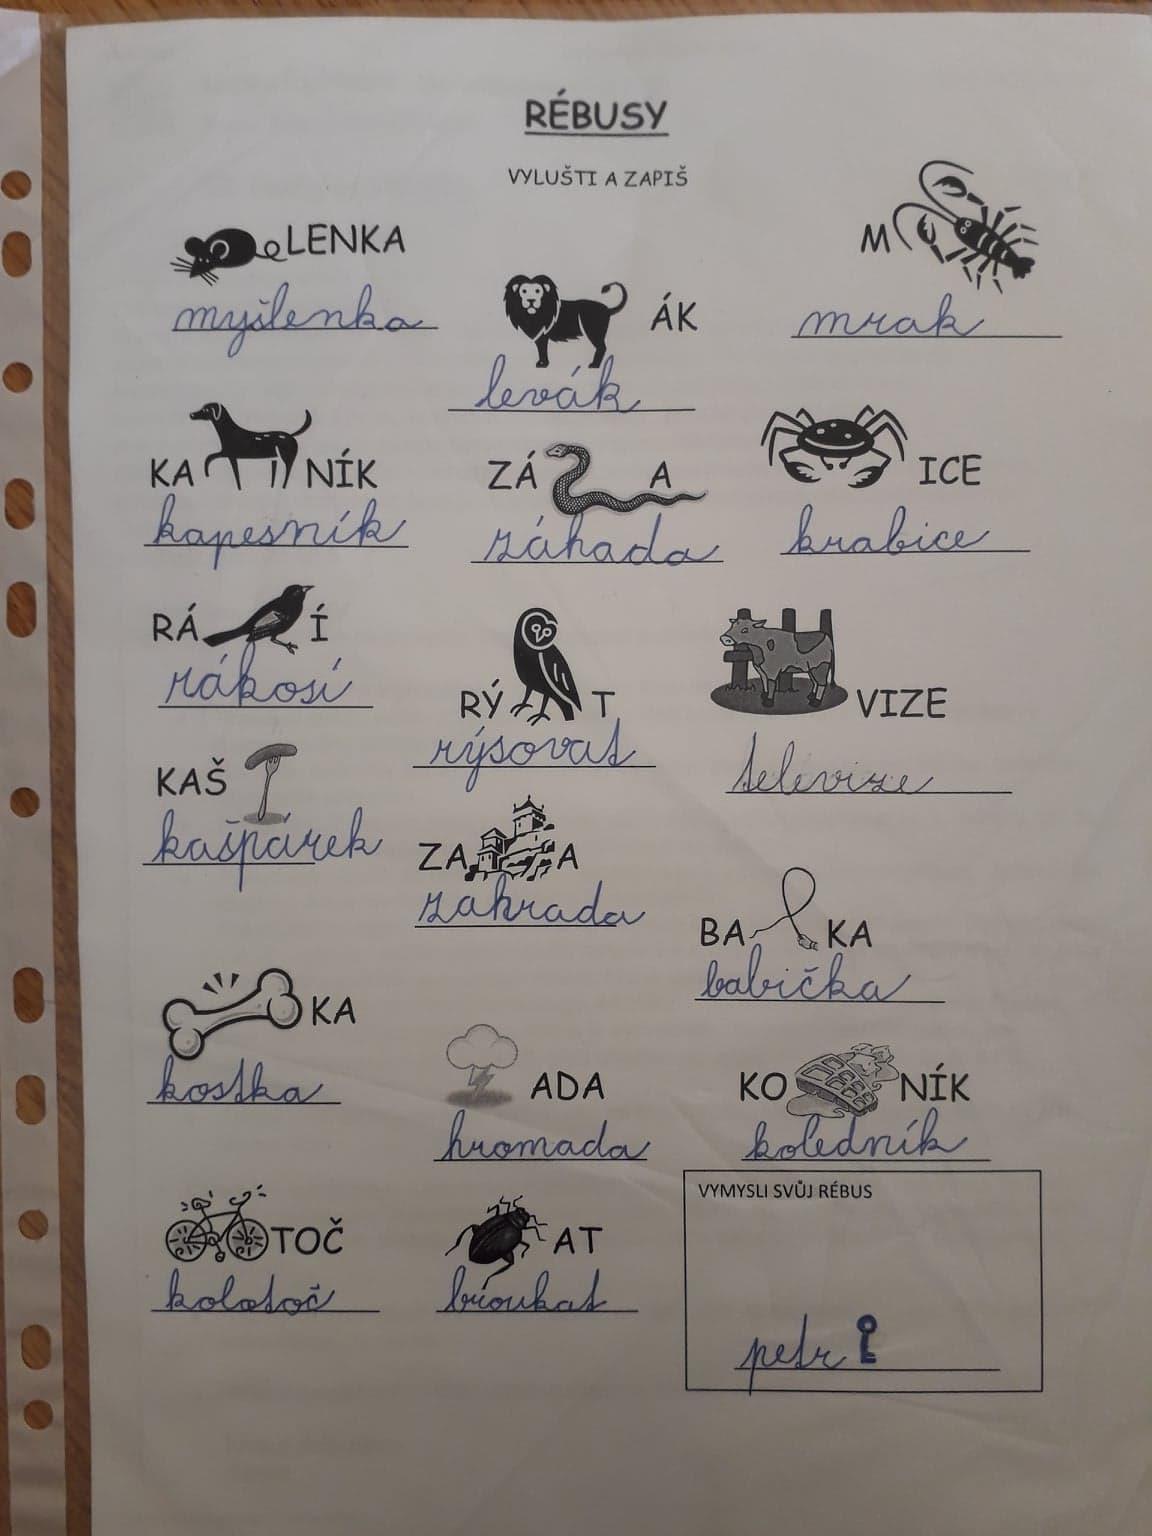 RÉBUSY
VYLUŠTI A ZAPIŠ
LENKA
myšlenka
ÁK
levák
M
mrak
KA NÍK
kapesník
ZÁ A
záhada
ICE
krabice
RÁ Í
rákosí
RÝ T
rýsovat
VIZE
televize
KAŠ
kašpárek
ZA A
zahrada
BA KA
babička
KA
kostka
ADA
hromada
KO NÍK
koledník
TOČ
kolotoč
AT
broukat
VYMYSLI SVŮJ RÉBUS
petr